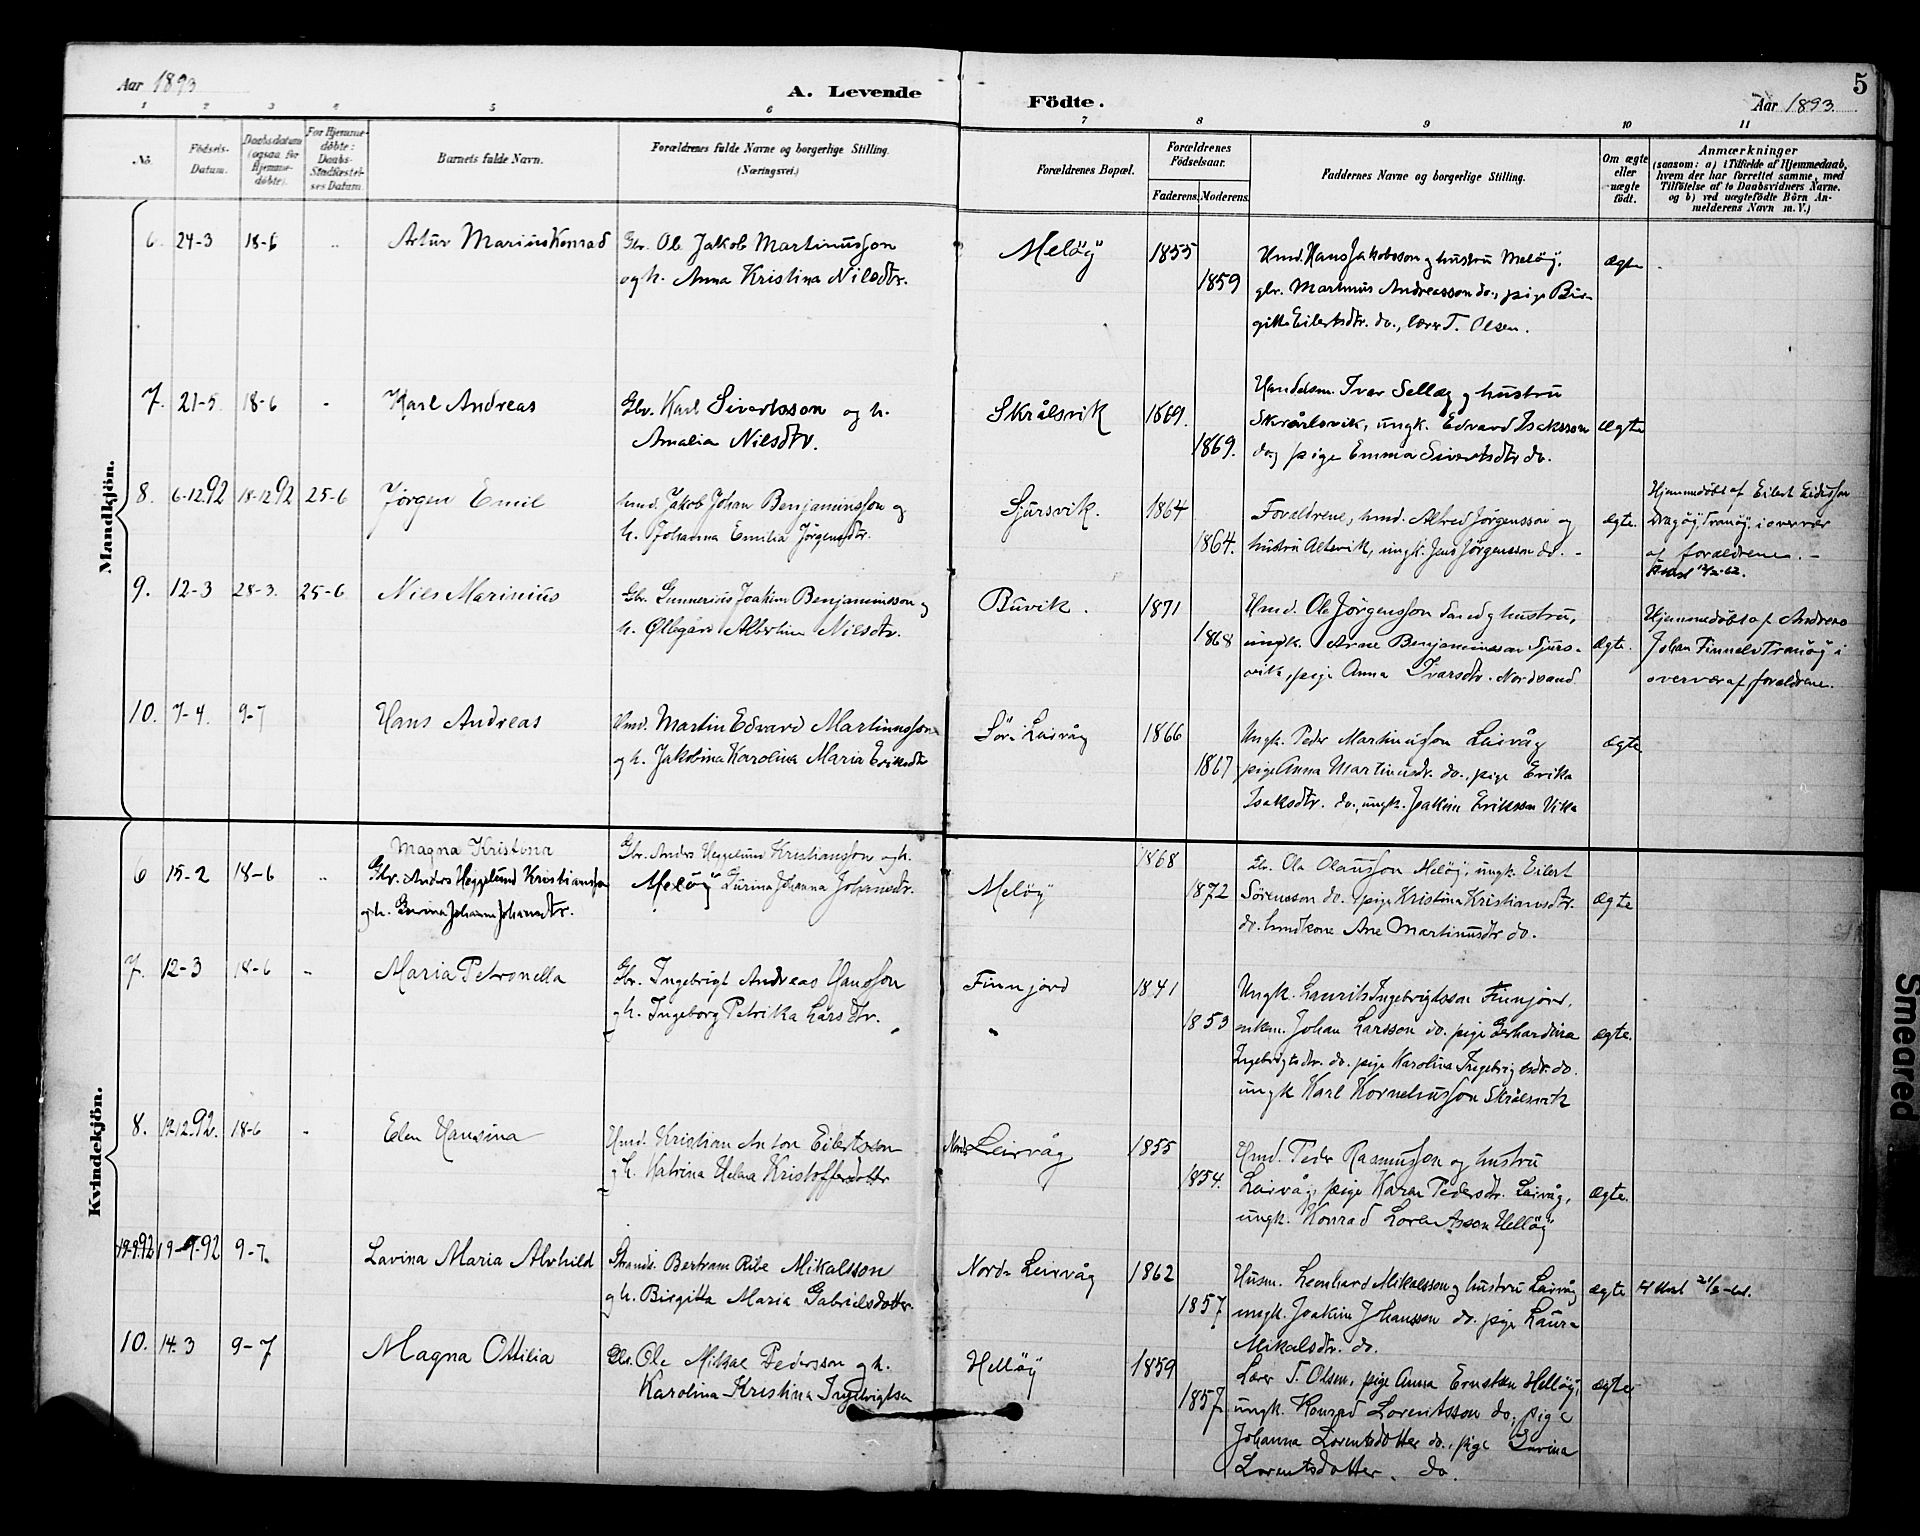 Aar 1893
A. Levende
Födte.
5
Aar 1893.
1 2 3 4 5 6 7 8 9 10 11
No.
Födsels-
Datum.
Daabsdatum
(ogsaa for
Hjemme-
döbte).
For Hjemme-
döbte:
Daabs-
Stadfæstel-
ses Datum.
Barnets fulde Navn.
Forældrenes fulde Navne og borgerlige Stilling.
(Næringsvei.)
Forældrenes Bopæl.
Forældrenes
Födselsaar.
Faderens. Moderens.
Faddernes Navne og borgerlige Stilling.
Om ægte
eller
uægte
födt.
Anmærkninger
(saasom: a) i Tilfælde af Hjemmedaab,
hvem der har forrettet samme, med
Tilföielse af to Daabsvidners Navne.
og b) ved uægtefödte Börn An-
melderens Navn m. V.)
Mandkjön.
6. 24-3 18-6 " Artur Marius Konrad
Gbr. Ole Jakob Martinusson
og h. Anna Kristina Nilsdtr.
Melöy 1855
1859
Hmd. Hans Jakobsson g hustru Melöy,
gbr. Martinus Andreasson do., pige Bir-
gitte Eilertsdtr. do., lærer T. Olsen.
ægte
7. 21-5 18-6 - Karl Andreas
Gbr. Karl Sivertsson og h.
Amalia Nilsdtr.
Skrålsvik 1869.
1869.
Handelsm. Ivar Selleg g hustru
Skrårlsvik, ungk. Edvard Isaksson
do g pige Emma Sivertsdtr do.
ægte
8. 6-12 92 18-12 92 25-6 Jørgen Emil
hmd. Jakob Johan Benjaminsson og
h. Johanna Emilia Jörgensdtr.
Sjursvik. 1864
1864.
Forældrene, hmd. Alfred Jörgensson og
hustru Altervik, ungk. Jens Jörgensson do. -
ægte.
Hjemmedöbt af Eilert Eidisson
Dragöy Tranöy i overvær
af forældrene. -
9. 12-3 28-3. 25-6 Nils Marinius
Gbr. Gunnerius Joakim Benjaminsson g
h. Øllegård Albertine Nilsdtr.
Buvik. 1871
1868
Hmd. Ole Jörgensson Sand g hustru,
ungk. Arne Benjaminsson Sjurs-
vik, pige Anna Ivarsdtr. Nordsand
Ægte.
Hjemmedöbt af Andreas
Johan Finnelv Tranöy i
overvær af forældrene.
10. 7-4. 9-7 Hans Andreas
Hmd. Martin Edvard Martinusson
og h. Jakobina Karolina Maria Eriksdtr
Sör-Leirvåg 1866
1867
Ungk. Peder Martinusson Leirvåg
pige Anna Martinusdtr. do., pige Erika
Isaksdtr. do., ungk. Joakim Eriksson Vika
ægte
Kvindekjön.
6 15-2 18-6 " Magna Kristina
Gbr. Anders Heggelund Kristiansson
og h. Gurina Johanna Johansdtr.
Gbr. Anders Heggelund Kristiansson og h.
Melöy Gurina Johanna Johansdtr.
Melöy 1868
1872
Gbr. Ole Olausson Melöy, ungk. Eilert
Sörensson do. pige Kristina Kristiansdtr.
do. hmdkone Ane Martinusdtr do.
ægte
7. 12-3 18-6 - Maria Petronella
Gbr. Ingebrigt Andreas Hansson
g h. Ingeborg Petrika Larsdtr.
Finnjord 1841
" 1853
Ungk. Laurits Ingebrigtsson Finnjord,
enkem. Johan Larsson do. pige Gerhardina
Ingebrigtsdtr. do. pige Karolina Ingebrigtsdtr. do.
ungk Karl Kornelusson Skrålsvik
ægte.
8. 12-92. 18-6 - Elen Hansina
Hmd. Kristian Anton Eilertsson
g h. Katrina Helena Kristoffersdotter
Nord Leirvåg 1855
1854.
Hmd. Peder Rasmusson og hustru
Leirvåg, pige Karen Pedersdtr. Leirvåg,
ungk. Konrad Lorentsson Hellöy
ægte.
19-9 92 19-9-92 9-7. Lavina Maria Alvhild
Strands. Bertram Ribe Mikalsson
g h. Birgitta Maria Gabrielsdotter
Nord-Leirvåg 1862
1857
Husm. Leonhard Mikalsson g hustru Leirvåg
ungk. Joakim Johansson do. pige Laura
Mikalsdtr. do.
ægte
10. 14-3 9-7 Magna Ottilia
Gbr. Ole Mikal Pedersson g h.
Karolina Kristina Ingebrigtsn
Hellöy 1859
1857
Lærer T. Olsen, pige Anna Ernstsen Hellöy,
ungk. Konrad Lorentsson do., pige
Johanna Lorentsdotter do., pige Lavina
Lorentsdotter. do.
ægte
Smeared